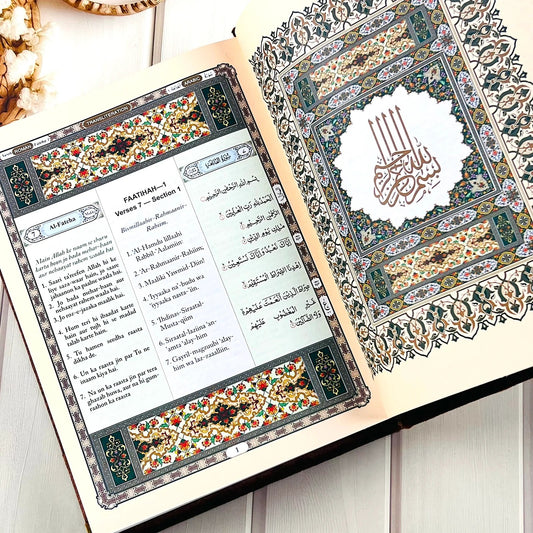 ROMAN
TRANSLITERATION
ARABIC
7
Al-Fateha
Main Allah ke naam se shuru
karta hoon jo bada meher-baan
aur nehaayat rahem waala hai.
1. Saari ta'reefen Allah hi ke
liye saza-waar hain, jo saare
jahaanon ka paalne waala hai.
2. Jo bada meherbaan aur
nehaayat rahem waala hai.
3. Jo roz-e-jaza ka maalik hai.
4. Hum teri hi ibaadat karte
hain aur tujh hi se madad
talab karte hain.
5. Tu hamen seedha raasta
dikha de.
6. Un ka raasta jin par Tu ne
inaam kiya hai.
7. Na un ka raasta jin par tera
ghazab huwa, aur na hi gum-
raahon ka raasta
FAATIHAH—1
Verses 7 — Section 1
Bismillaahir-Rahmaanir-
Raheem.
1. 'Al-Hamdu lillaahi
Rabbil-'Aalamiin;
2. 'Ar-Rahmaanir-Rahiim;
3. Maaliki Yawmid-Diin!
4. 'Iyyaaka na'-budu wa
'iyyaaka nasta-'iin.
5. 'Ihdinas-Siraatal-
Musta-qiim
6. Siraatal-laziina 'an-
'amta 'alay-him
7. Gayril-magzuubi 'alay-
him wa laz-zaaalliin.
بِسْمِ اللَّهِ الرَّحْمَٰنِ الرَّحِيمِ
الْحَمْدُ لِلَّهِ رَبِّ الْعَالَمِينَ
الرَّحْمَٰنِ الرَّحِيمِ
مَالِكِ يَوْمِ الدِّينِ
إِيَّاكَ نَعْبُدُ وَإِيَّاكَ نَسْتَعِينُ
اهْدِنَا الصِّرَاطَ الْمُسْتَقِيمَ
صِرَاطَ الَّذِينَ أَنْعَمْتَ عَلَيْهِمْ
غَيْرِ الْمَغْضُوبِ عَلَيْهِمْ
1
بسم الله الرحمن الرحيم